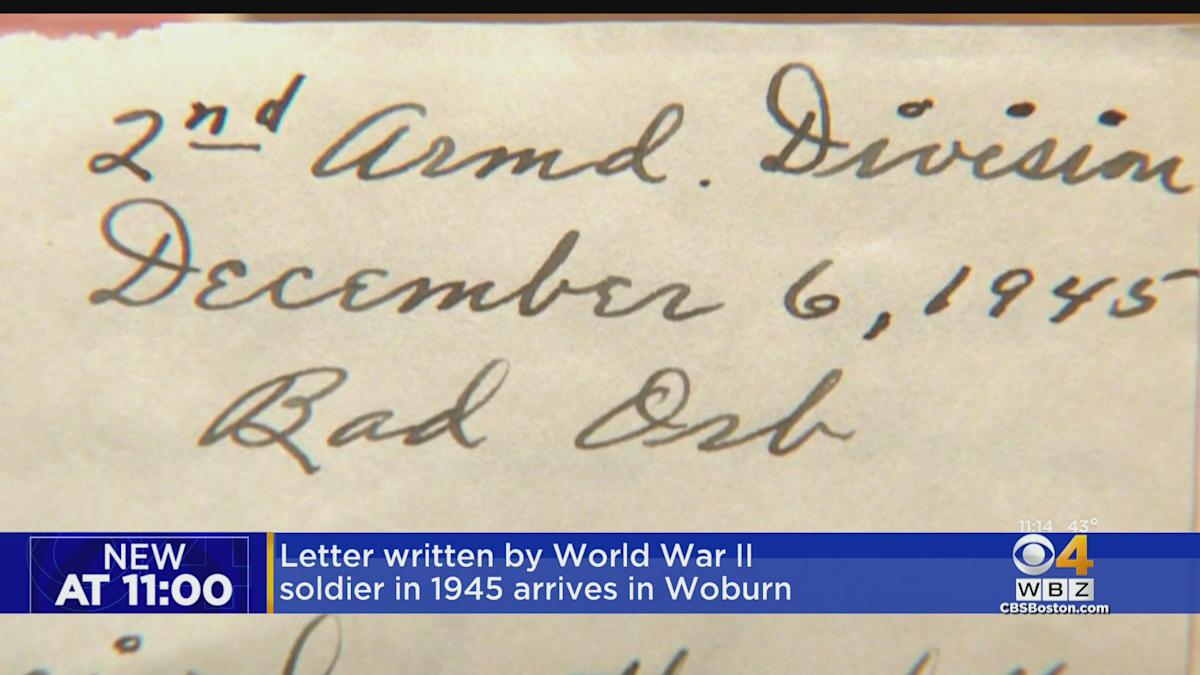 2nd Armd. Division
December 6, 1945
Bad Orb
11:14 43°
NEW
AT 11:00
Letter written by World War II
soldier in 1945 arrives in Woburn
4
WBZ
CBSBoston.com